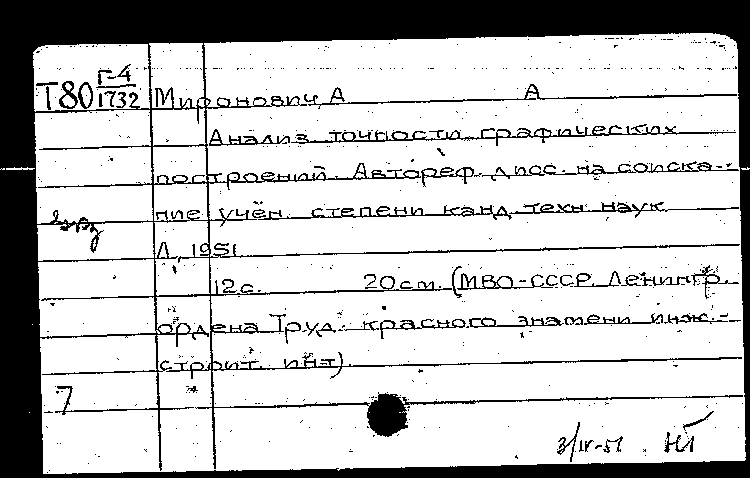 Т80 Г-4/1732 Миронович, А А
Анализ точности графических
построений. Автореф. дисс. на соиска-
ние учён. степени канд. техн. наук.
Л., 1951.
12 с. 20 см. (МВО-СССР. Ленингр.
ордена Труд. красного знамени инж.-
строит. ин-т).
7
3/IV-51 НГ